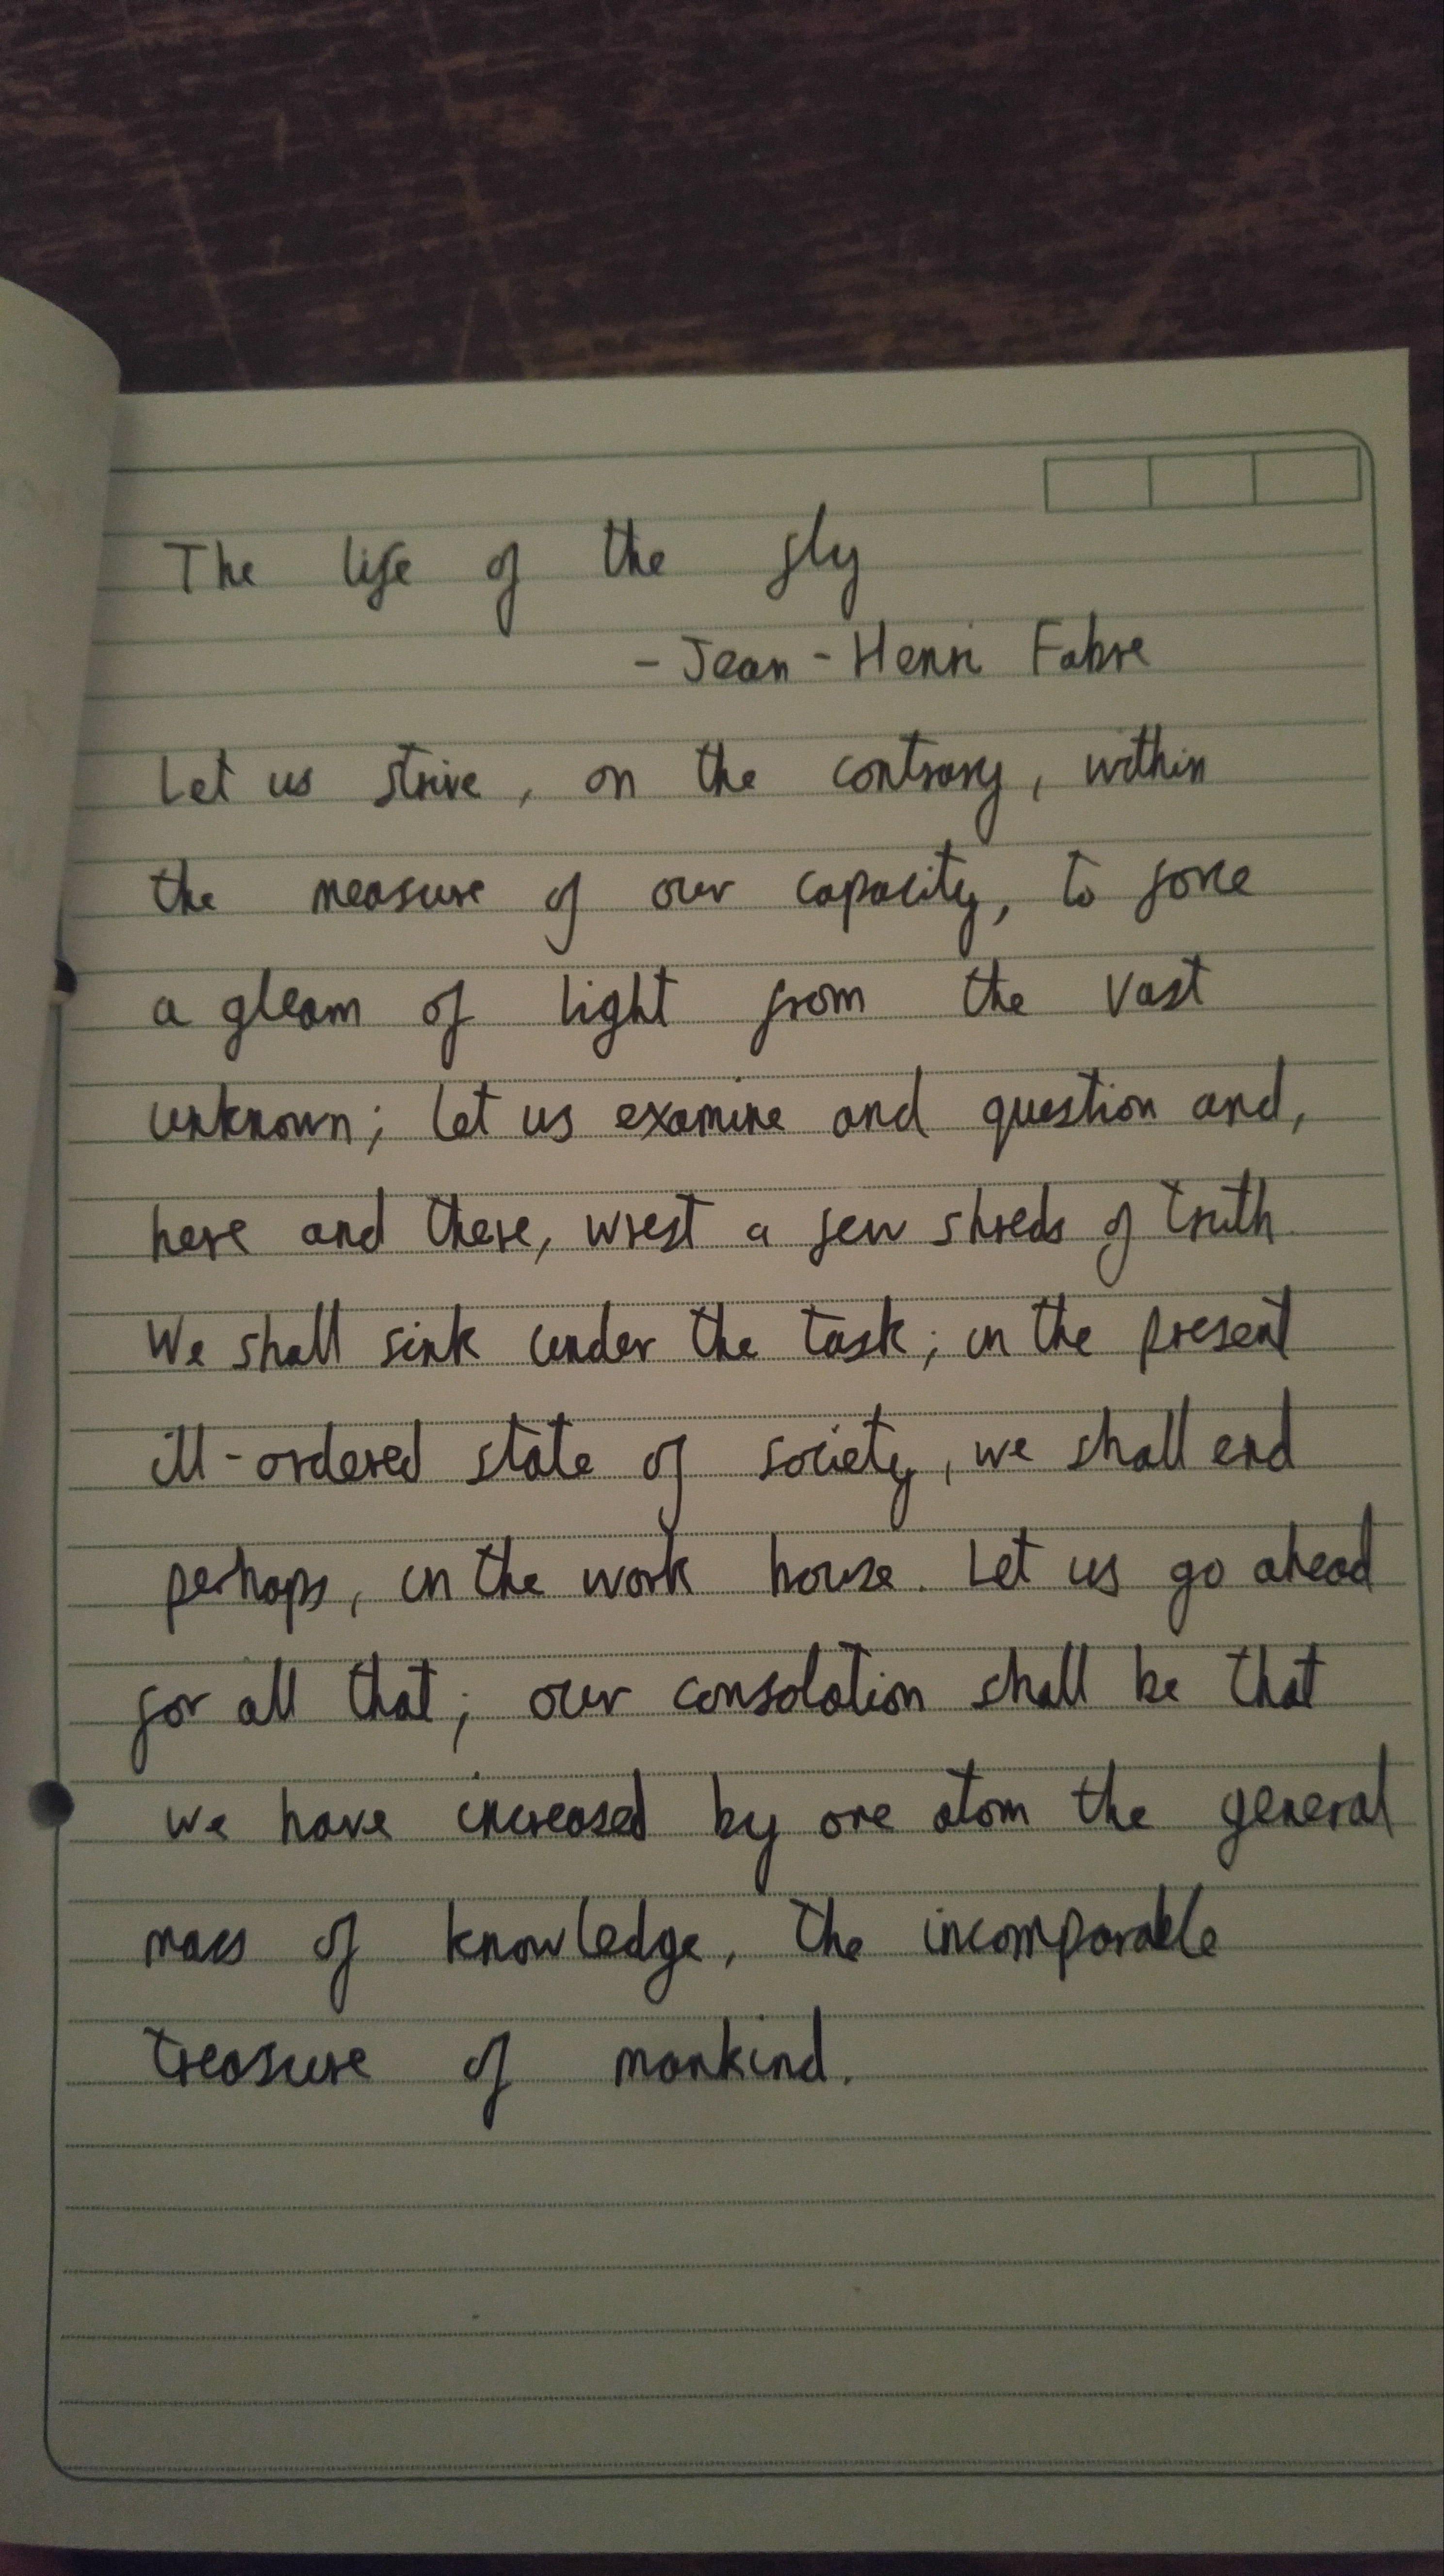 The life of the fly
- Jean - Henri Fabre
Let us strive, on the contrary, within
the measure of our capacity, to force
a gleam of light from the vast
unknown; let us examine and question and,
here and there, wrest a few shreds of truth.
We shall sink under the task; in the present
ill-ordered state of society, we shall end
perhaps, in the work house. Let us go ahead
for all that; our consolation shall be that
we have increased by one atom the general
mass of knowledge, the incomparable
treasure of mankind.